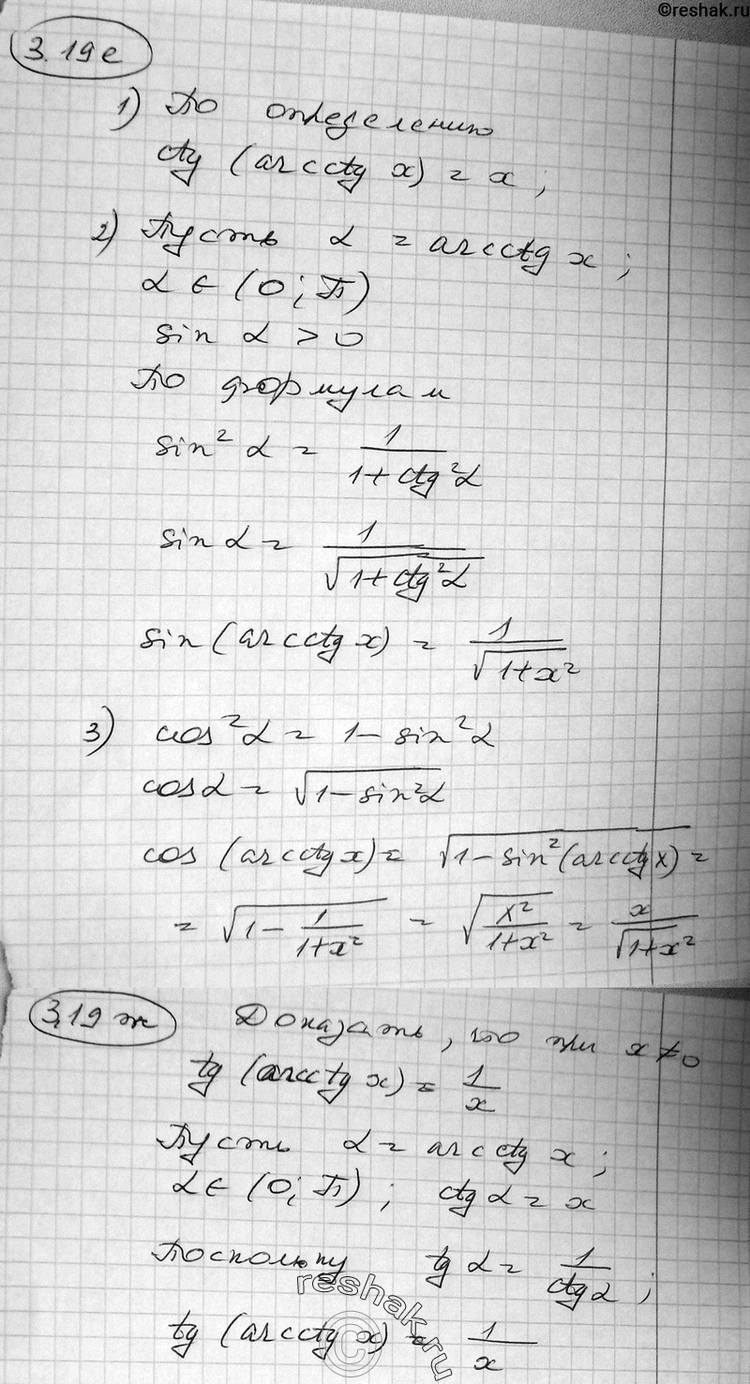 ©reshak.ru
3.19е
1) По определению
ctg (arcctg x) = x;
2) Пусть α = arcctg x;
α ∈ (0; π)
sin α > 0
По формулам
sin² α = 1/(1+ctg²α)
sin α = 1/√(1+ctg²α)
sin (arcctg x) = 1/√(1+x²)
3) cos²α = 1 - sin²α
cos α = √(1-sin²α)
cos (arcctg x) = √(1-sin²(arcctg x)) =
= √(1 - 1/(1+x²)) = √(x²/(1+x²)) = x/√(1+x²)
3.19ж Доказать, что при x ≠ 0
tg (arcctg x) = 1/x
Пусть α = arcctg x;
α ∈ (0; π); ctg α = x
Поскольку tg α = 1/ctg α;
tg (arcctg x) = 1/x
reshak.ru
©